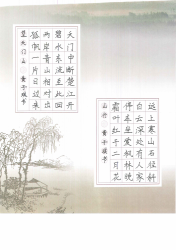 远上寒山石径斜
白云深处有人家
停车坐爱枫林晚
霜叶红于二月花
山行 黄子书
天门中断楚江开
碧水东流至此回
两岸青山相对出
孤帆一片日边来
望天门山 黄子书